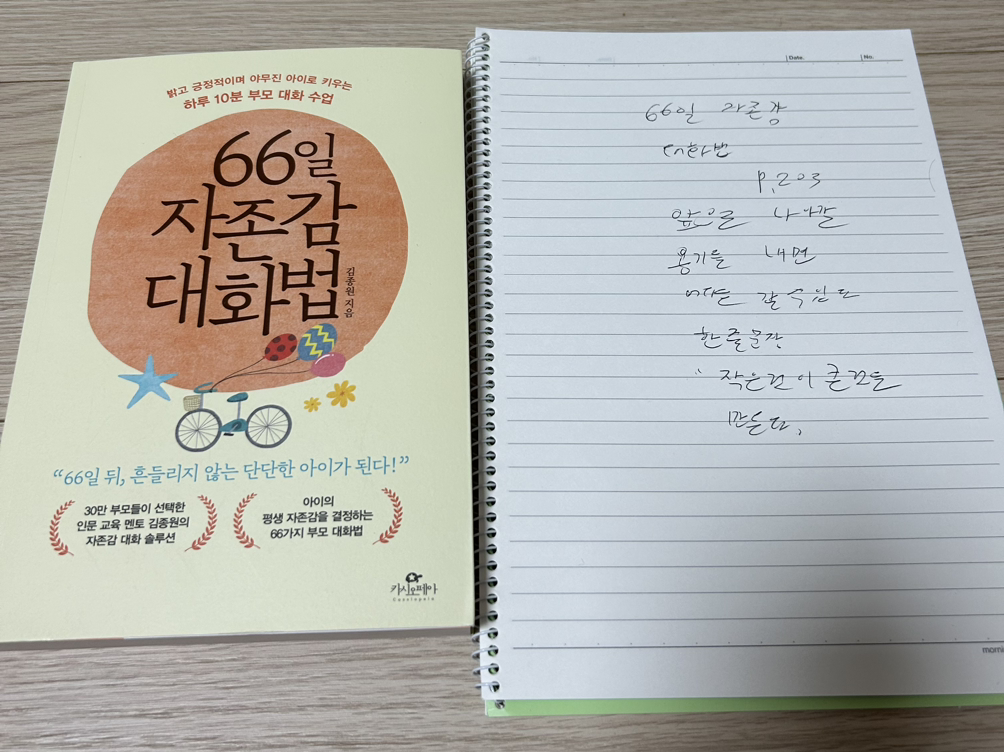 밝고 긍정적이며 야무진 아이로 키우는
하루 10분 부모 대화 수업
66일
자존감
대화법
김종원 지음
“66일 뒤, 흔들리지 않는 단단한 아이가 된다!”
30만 부모들이 선택한
인문 교육 멘토 김종원의
자존감 대화 솔루션
아이의
평생 자존감을 결정하는
66가지 부모 대화법
카시오페아
Cassiopeia
Date.
No.
66일 자존감
대화법
p.203
앞으로 나아갈
용기를 내면
갈 수 있다
한 줄 문장
“작은 것이 큰 것을
만든다.